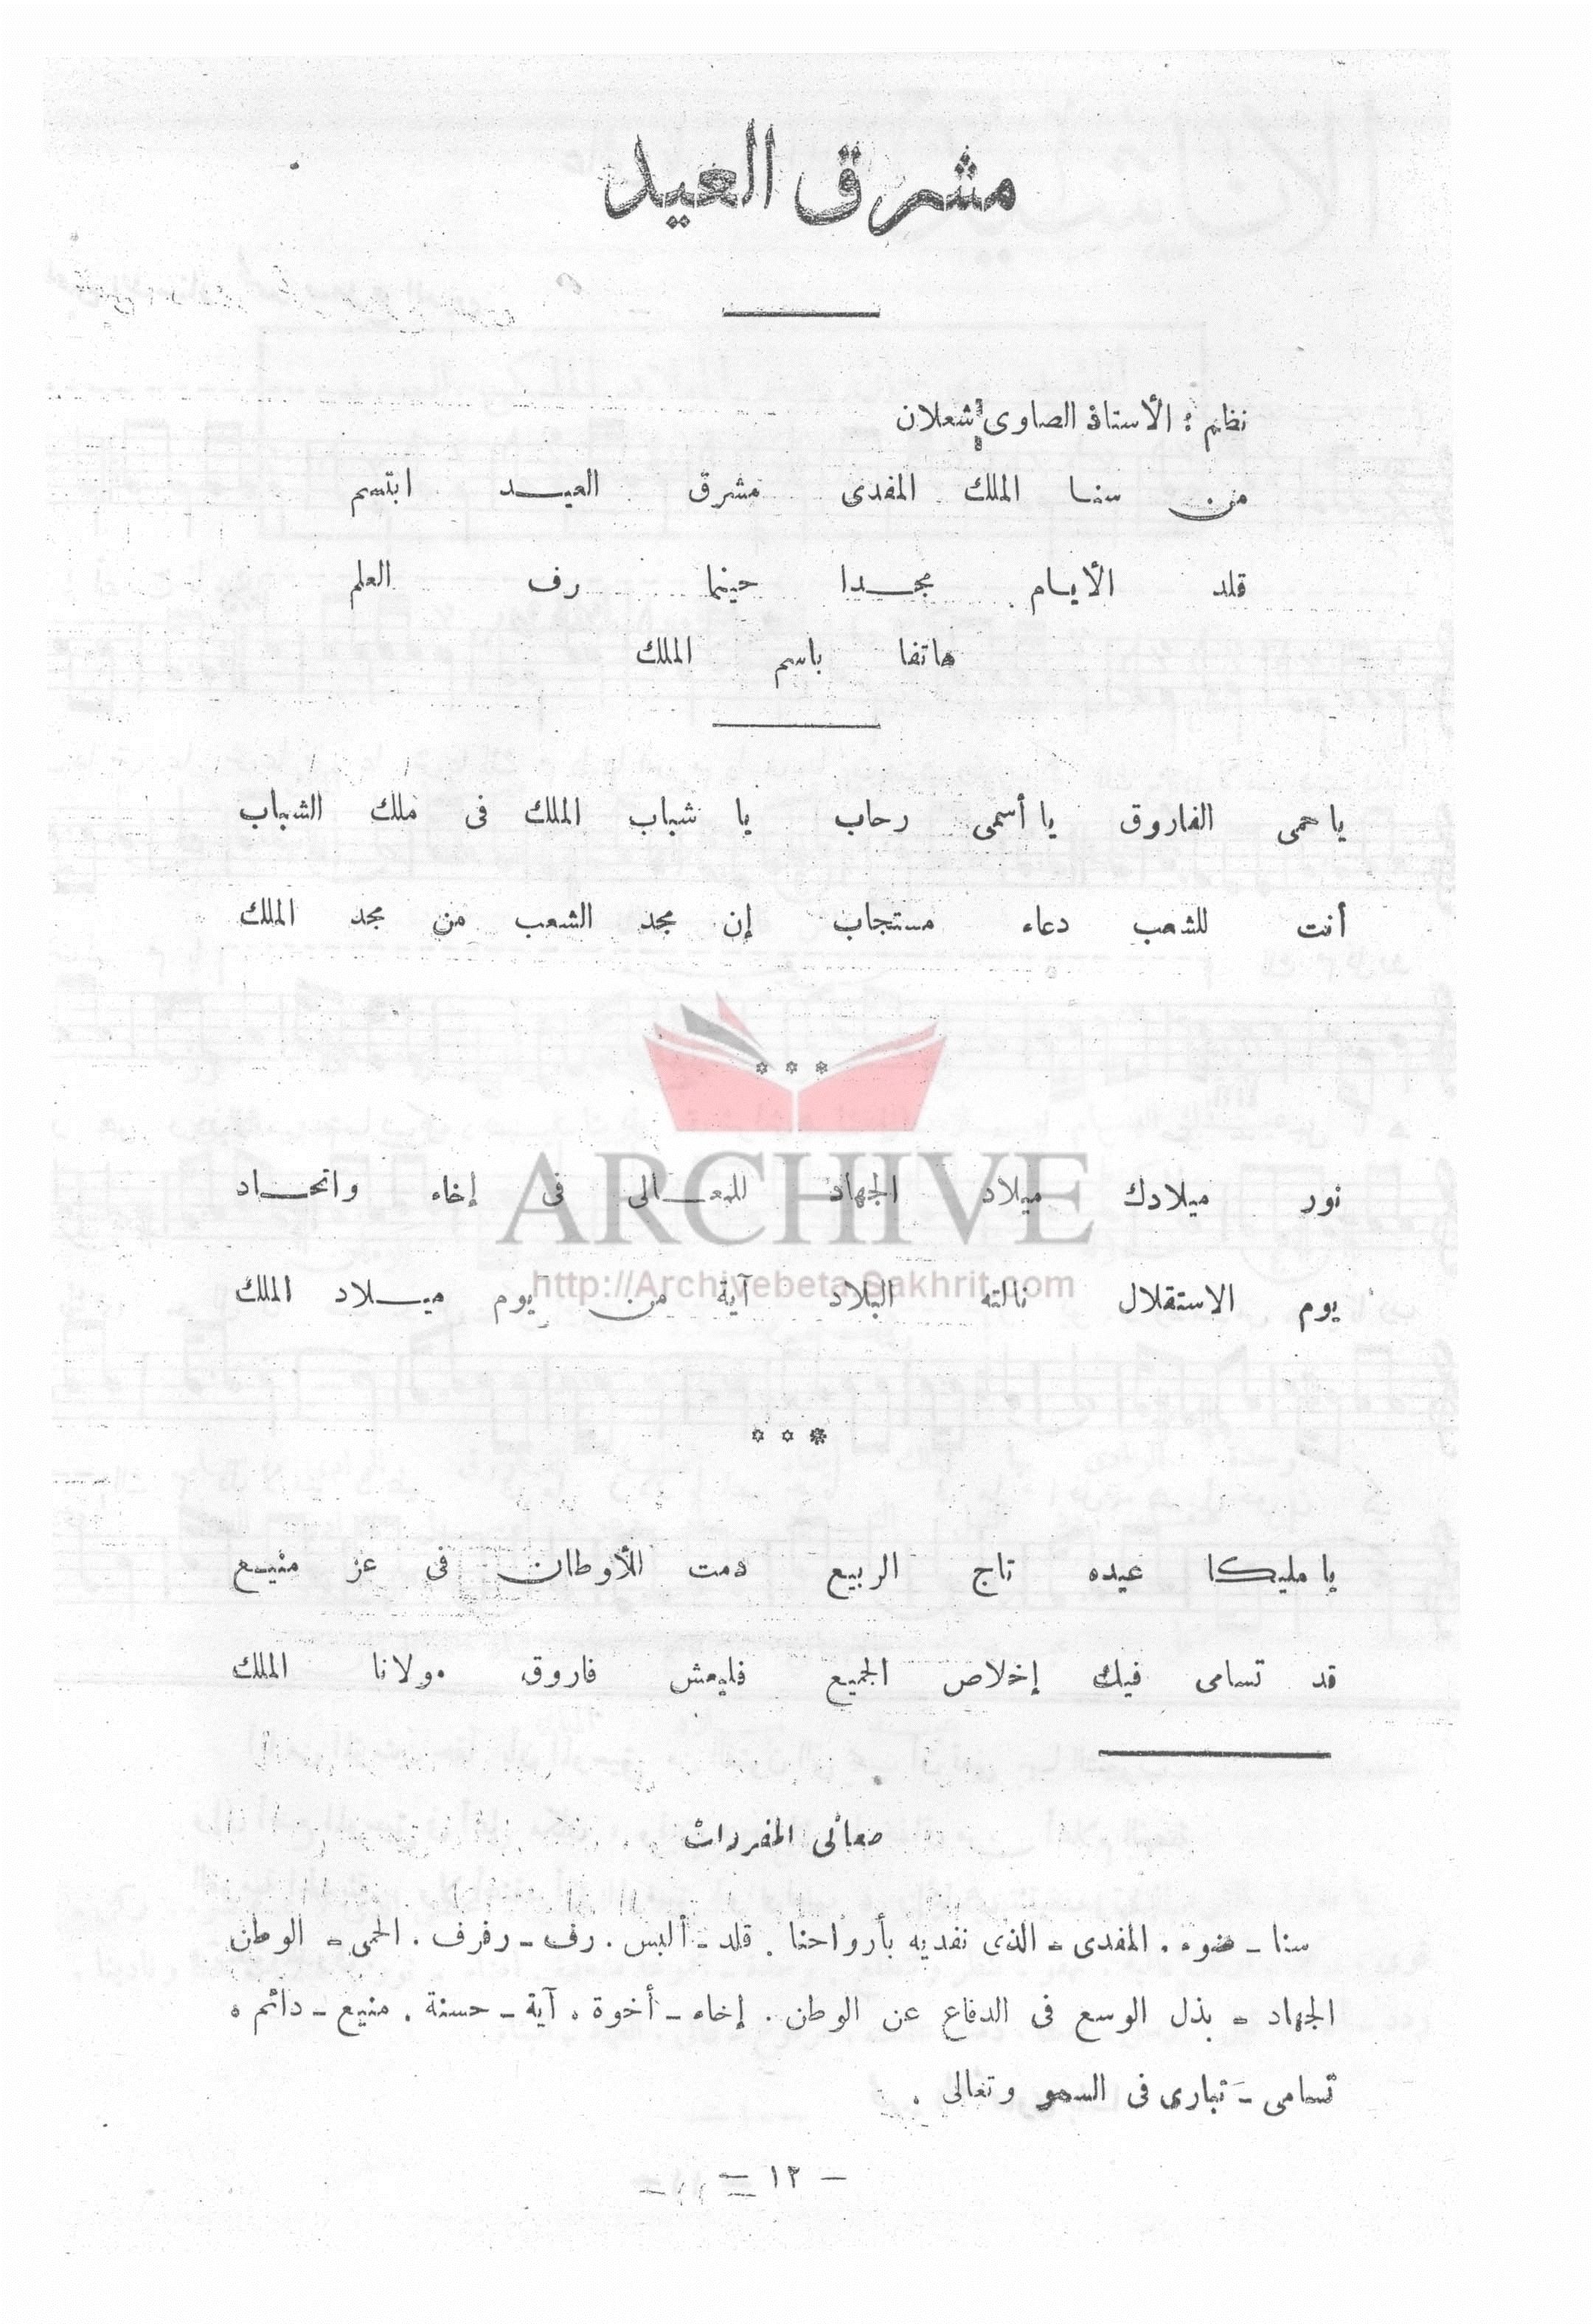 مشرق العيد
نظم : الأستاذ الصاوى شعلان
من سنا الملك المفدى مشرق العيد ابتسم
قلد الأيام مجدا حينما رف العلم
هاتفا باسم الملك
يا حمى الفاروق يا أسمى رحاب يا شباب الملك فى ملك الشباب
أنت للشعب دعاء مستجاب إن مجد الشعب من مجد الملك
* * *
ARCHIVE
نور ميلادك ميلاد الجهاد للمعالى فى إخاء واتحاد
http://Archivebeta.Sakhrit.com
يوم الاستقلال نالته البلاد آية من يوم ميلاد الملك
* * *
يا مليكا عيده تاج الربيع دمت للأوطان فى عز منيع
قد تسامى فيك إخلاص الجميع فليعش فاروق مولانا الملك
معانى المفردات
سنا - ضوء . المفدى - الذى نفديه بأرواحنا . قلد - ألبس . رف - رفرف . الحمى - الوطن
الجهاد - بذل الوسع فى الدفاع عن الوطن . إخاء - أخوة . آية - حسنة . منيع - دائم .
تسامى - تبارى فى السمو وتعالى .
- ١٢ -